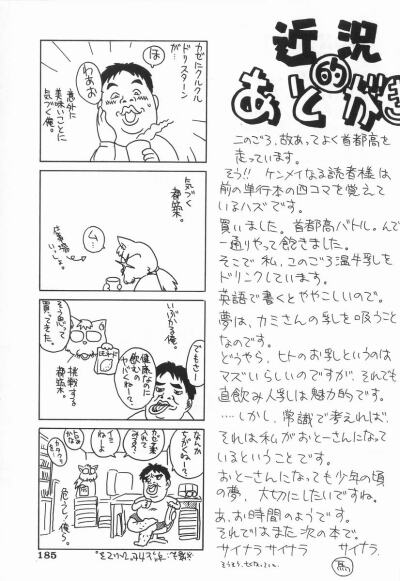 近況
的
あとがき
このごろ、故あってよく首都高を
走っています。
そう!! ケンメイなる読者様は
前の単行本の四コマを覚えて
いるハズです。
買いました。首都高バトル。んで
一通りやって飽きました。
そこで私、このごろ温牛乳を
ドリンクしています。
英語で書くとややこしいので。
夢は、カミさんの乳を吸うこと
なのです。
どうやら、ヒトのお乳というのは
マズいらしいのですが、それでも
直飲み人乳は魅力的です。
……しかし、常識で考えれば、
それは私がおとーさんになって
いるということです。
おとーさんになっても少年の頃
の夢、大切にしたいですね。
あ、お時間のようです。
それではまた次の本で。
サイナラ サイナラ サイナラ。
カゼにクルクル
ドリスターン
が…
は
わぁお
意外に
美味いことに
気づく俺。
気づく
ム…
仕事場
いぶかる俺。
でもさー
健康なのに
飲むの
ヤバくねー?
そう思って
買ってきた。
挑戦する
なんか
ちがくねー?
カゼ薬
入れて
みよう
か
イーね
ソレ
危うし!俺ら。
185